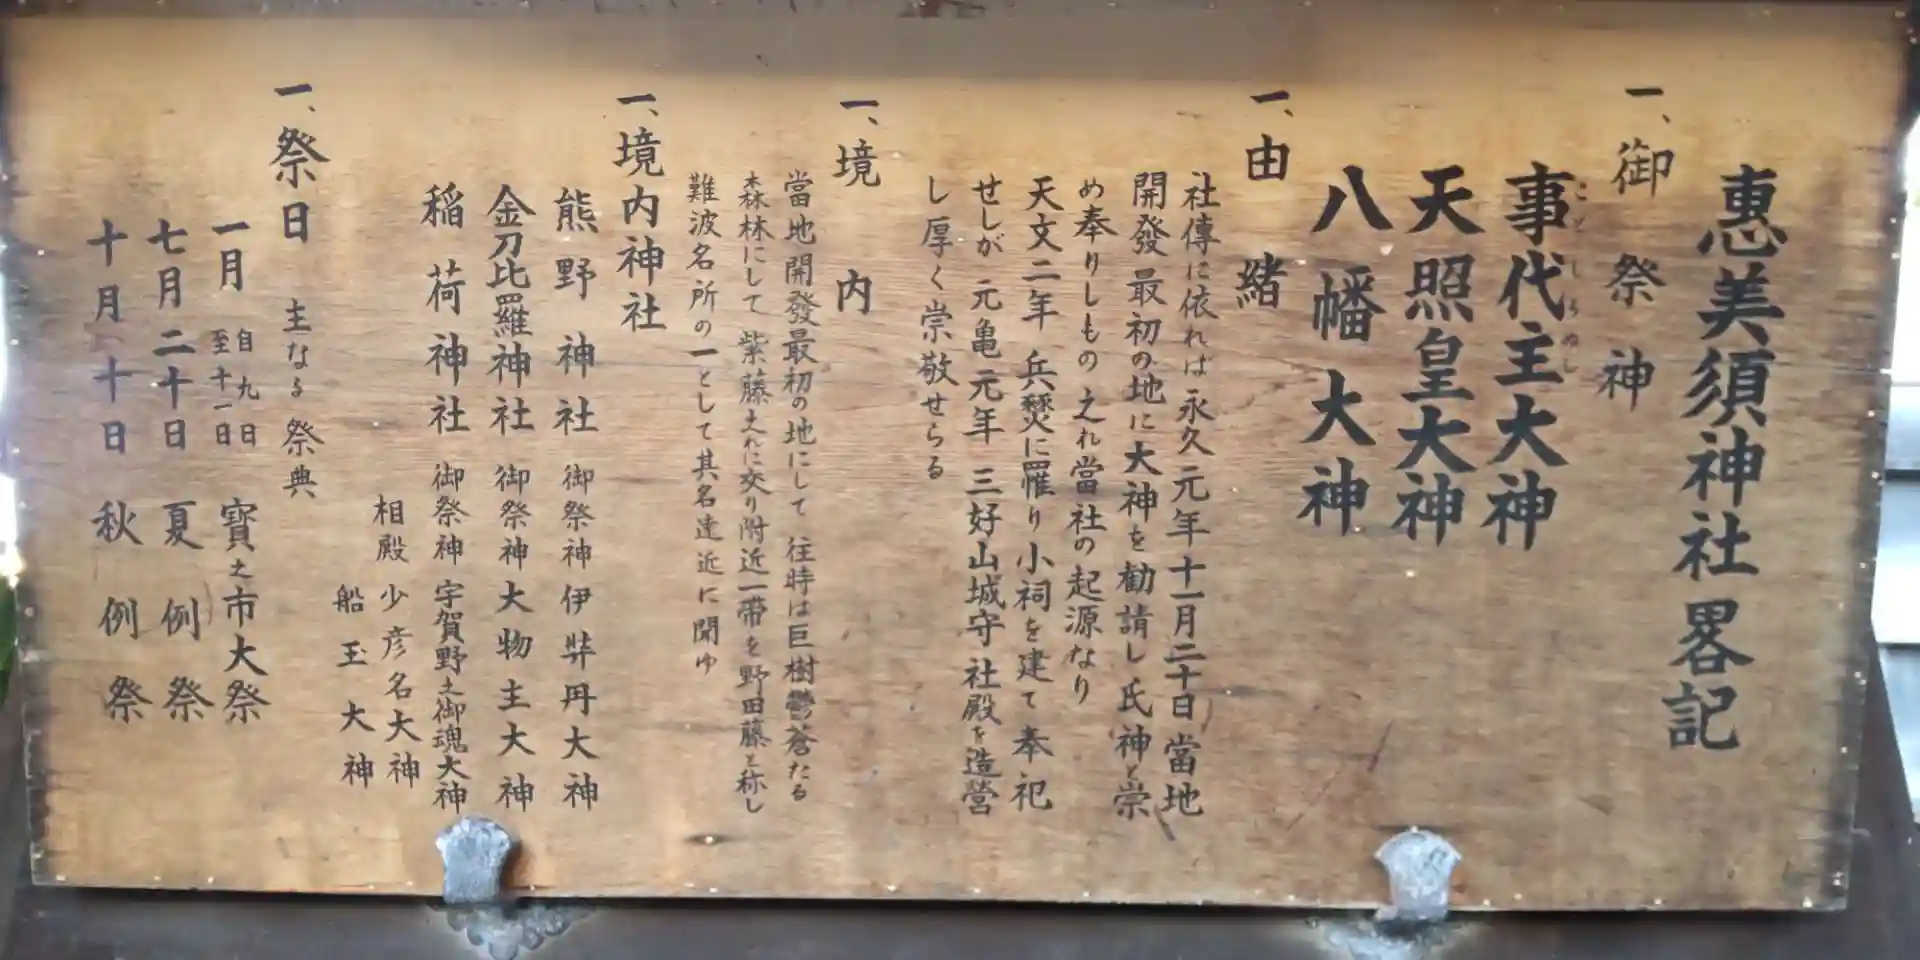 惠美須神社畧記
一、御祭神
事代主大神
ことしろぬし
天照皇大神
八幡大神
一、由緒
社傳に依れば永久元年十一月二十日當地
開發最初の地に大神を勧請し氏神と崇
め奉りしもの之れ當社の起源なり
天文二年 兵燹に罹り小祠を建て奉祀
せしが 元亀元年 三好山城守 社殿を造營
し厚く崇敬せらる
一、境内
當地開發最初の地にして 往時は巨樹鬱蒼たる
森林にして 紫藤之れに交り附近一帯を野田藤と称し
難波名所の一として其名遠近に聞ゆ
一、境内神社
熊野神社 御祭神 伊弉冉大神
金刀比羅神社 御祭神 大物主大神
稲荷神社 御祭神 宇賀野之御魂大神
相殿 少彦名大神
船玉大神
一、祭日 主なる祭典
一月 自九日 至十一日 寳之市大祭
七月二十日 夏例祭
十月二十日 秋例祭